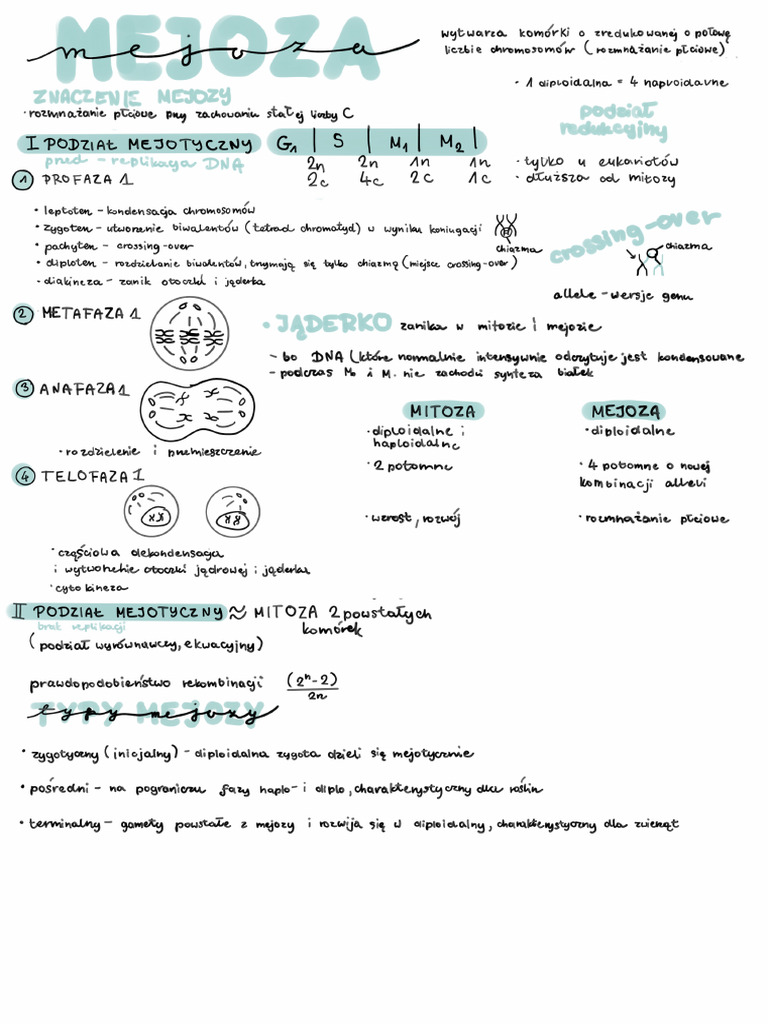 MEJOZA
mejoza
wytwarza komórki o zredukowanej o połowę
liczbie chromosomów (rozmnażanie płciowe)
· 1 diploidalna = 4 haploidalne
ZNACZENIE MEJOZY
· rozmnażanie płciowe przy zachowaniu stałej liczby C
podział
redukcyjny
I PODZIAŁ MEJOTYCZNY
G1 | S | M1 | M2 |
przed - replikacja DNA
2n 2n 1n 1n
2c 4c 2c 1c
· tylko u eukariotów
· dłuższa od mitozy
1 PROFAZA 1
· leptoten - kondensacja chromosomów
· zygoten - utworzenie biwalentów (tetrad chromatyd) w wyniku koniugacji
chiazma
· pachyten - crossing-over
· diploten - rozdzielanie biwalentów, trzymają się tylko chiazmą (miejsce crossing-over)
· diakineza - zanik otoczki i jąderka
crossing-over
chiazma
allele - wersje genu
2 METAFAZA 1
· JĄDERKO zanika w mitozie i mejozie
- bo DNA (które normalnie intensywnie odczytuje jest kondensowane
- podczas M0 i M. nie zachodzi synteza białek
3 ANAFAZA 1
· rozdzielenie i przemieszczenie
MITOZA MEJOZA
· diploidalne i
haploidalne
· diploidalne
· 2 potomne
· 4 potomne o nowej
kombinacji alleli
· wzrost, rozwój
· rozmnażanie płciowe
4 TELOFAZA 1
· częściowa dekondensacja
i wytworzenie otoczki jądrowej i jąderka
· cytokineza
II PODZIAŁ MEJOTYCZNY ≈ MITOZA 2 powstałych
komórek
brak replikacji
(podział wyrównawczy, ekwacyjny)
prawdopodobieństwo rekombinacji (2ⁿ-2)
2n
TYPY MEJOZY
typy mejozy
· zygotyczny (inicjalny) - diploidalna zygota dzieli się mejotycznie
· pośredni - na pograniczu fazy haplo- i diplo, charakterystyczny dla roślin
· terminalny - gamety powstałe z mejozy i rozwija się w diploidalny, charakterystyczny dla zwierząt